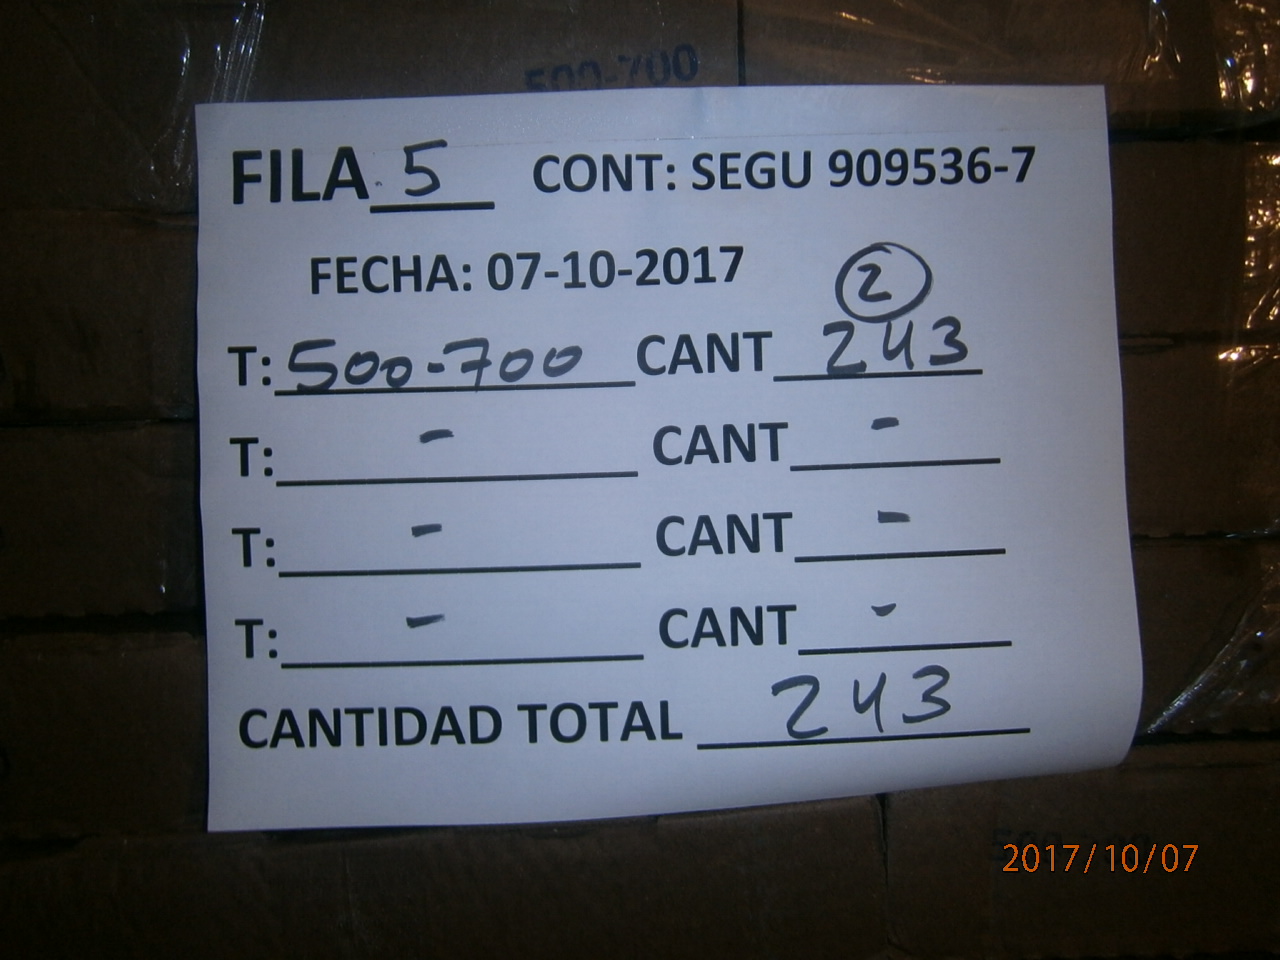 500-700
FILA 5 CONT: SEGU 909536-7
FECHA: 07-10-2017
2
T: 500-700 CANT 243
T: - CANT -
T: - CANT -
T: - CANT -
CANTIDAD TOTAL 243
2017/10/07